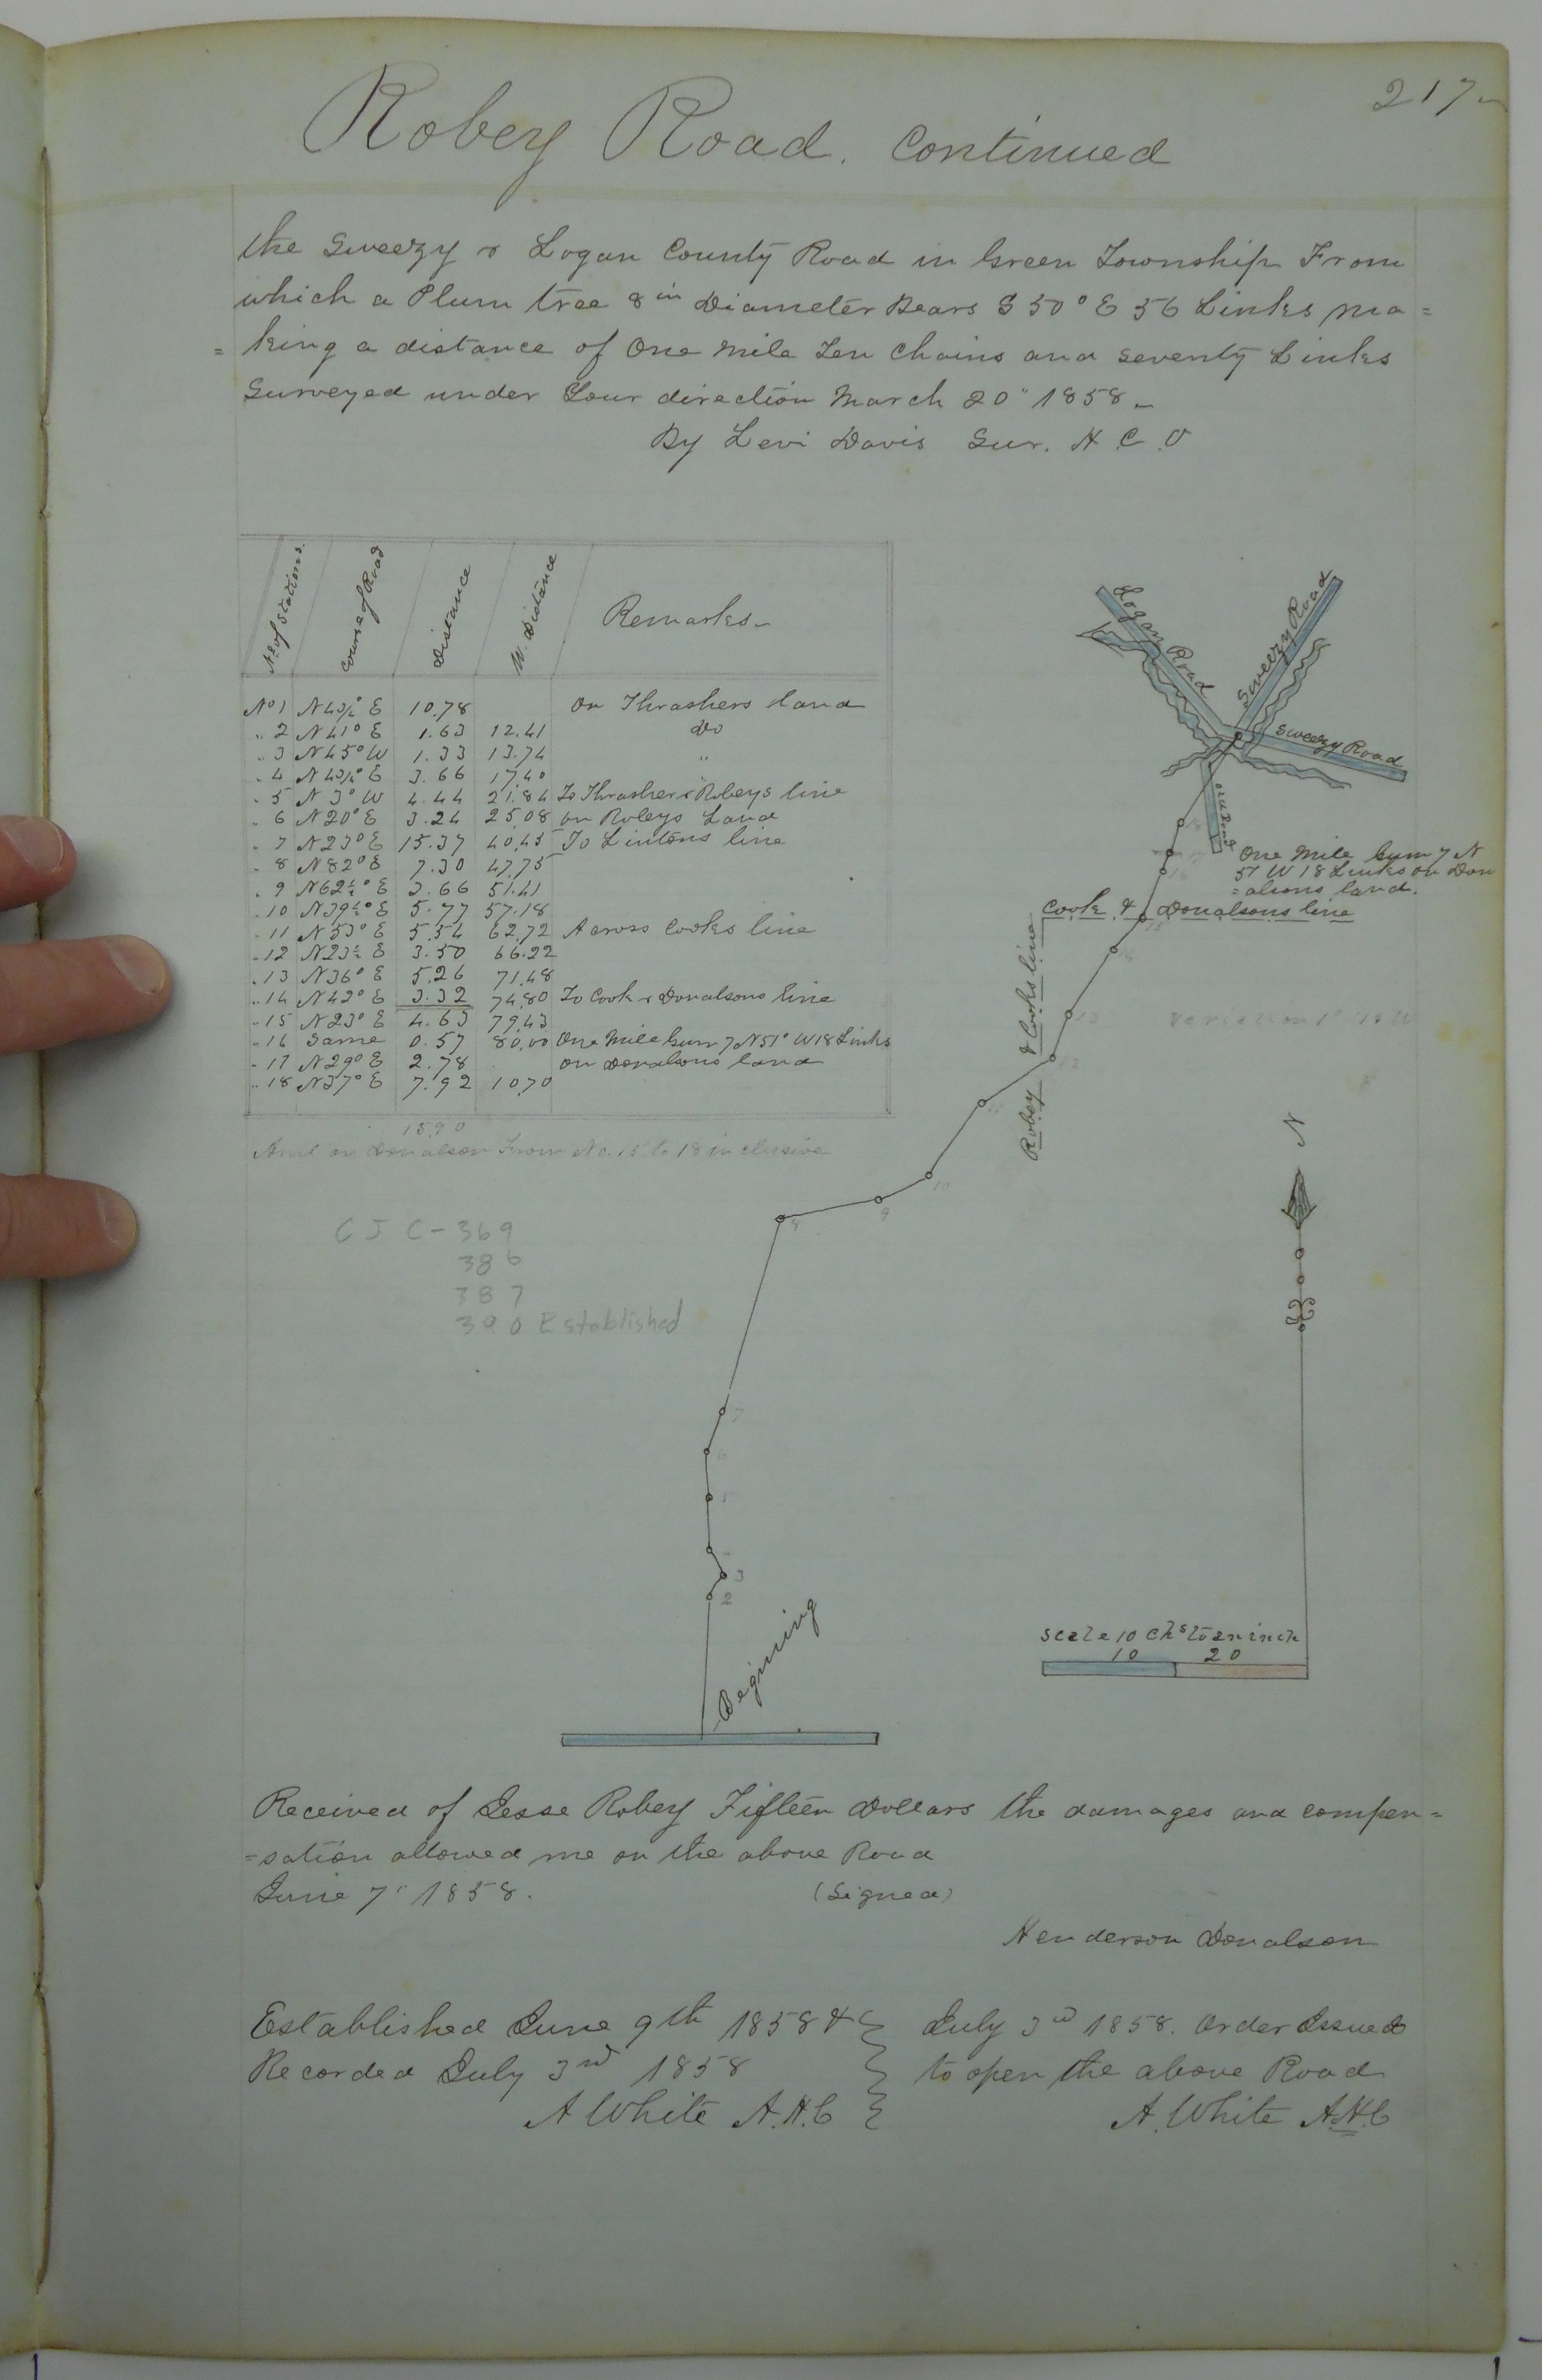 217
Robey Road. Continued
the Sweezy & Logan County Road in Green Township From
which a Plum tree 8 in Diameter Bears S 50° E 56 Links ma=
=king a distance of One Mile Ten Chains and Seventy Links
Surveyed under Your direction March 20" 1858
By Levi Davis Sur. H. C. O
No of Stations. Course of Road Distance W. Distance Remarks
No 1 N 4 3/4° E 10.78 On Thrashers Land
" 2 N 41° E 1.63 12.41 do
" 3 N 45° W 1.33 13.74 "
" 4 N 4 3/4° E 3.66 17.40 "
" 5 N 3° W 4.44 21.84 To Thrasher & Robeys line
" 6 N 20° E 3.24 25.08 on Robeys Land
" 7 N 23° E 15.37 40.45 To Lintons line
" 8 N 82° E 7.30 47.75
" 9 N 62 1/2° E 3.66 51.41
" 10 N 39 1/2° E 5.77 57.18
" 11 N 53° E 5.54 62.72 Across Cooks line
" 12 N 23 1/2 E 3.50 66.22
" 13 N 36° E 5.26 71.48
" 14 N 42° E 3.32 74.80 To Cook & Donalsons line
" 15 N 23° E 4.63 79.43
" 16 Same 0.57 80.00 One Mile Gum 7 N 51° W 18 Links
" 17 N 29° E 2.78 on Donalsons land
" 18 N 37° E 7.92 10.70
15.90
Amt on Donalson From No. 15 to 18 inclusive
C J C - 369
386
387
390 Established
Logan Road
Sweezy Road
Sweezy Road
Old Road
One Mile Gum 7 N
51 W 18 Links on Don
=alsons land.
Cook & Donalsons line
Robey & Cooks line
Variation 1° 15 W
N
18
17
16
15
14
13
12
11
10
9
8
7
6
5
3
2
Begining
Scale 10 Chs to an inch
10 20
Received of Jesse Robey Fifteen Dollars the damages and compen=
=sation allowed me on the above Road
June 7" 1858.
(Signed)
Henderson Donalson
Established June 9th 1858 &
Recorded July 3rd 1858
A White A.H.C
July 3rd 1858. Order Issued
to open the above Road
A. White A.H.C